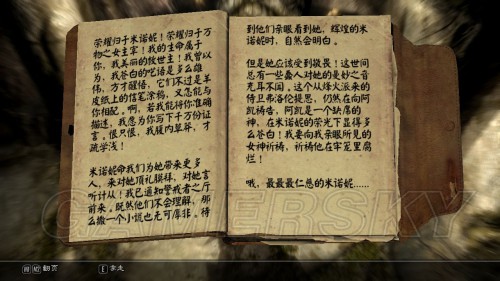 荣耀归于米诺妮！荣耀归于万
物之女主宰！我的生命属于
你，我美丽的救世主！我曾以
为，我苍白的呓语是多么雄
伟，方才醒悟，它们不过是羊
皮纸上的信笔涂鸦，又怎能与
你相配。啊，若我能将你准确
描述，我愿为你写下千万份证
言。恨只恨，我腹内草莽，才
疏学浅！
米诺妮命我们为她带来更多
人，来对她顶礼膜拜，对她言
听计从！我已通知警戒者之厅
前来。既然他们不会理解，那
么撒一个小谎也无可厚非。待
到他们亲眼看到她，辉煌的米
诺妮时，自然会明白。
但是她应该受到敬畏！这世间
总有一些蠢人对她的曼妙之音
充耳不闻。这个从烽火派来的
侍卫弗洛伦提恩，仍然在向阿
凯祷告，阿凯是一个缺席的
神，在米诺妮的荣光下显得多
么苍白！我要向我亲眼所见的
女神祈祷，祈祷他在牢笼里腐
烂！
哦，最最最仁慈的米诺妮……
GAMERSKY
翻页
E 拿走